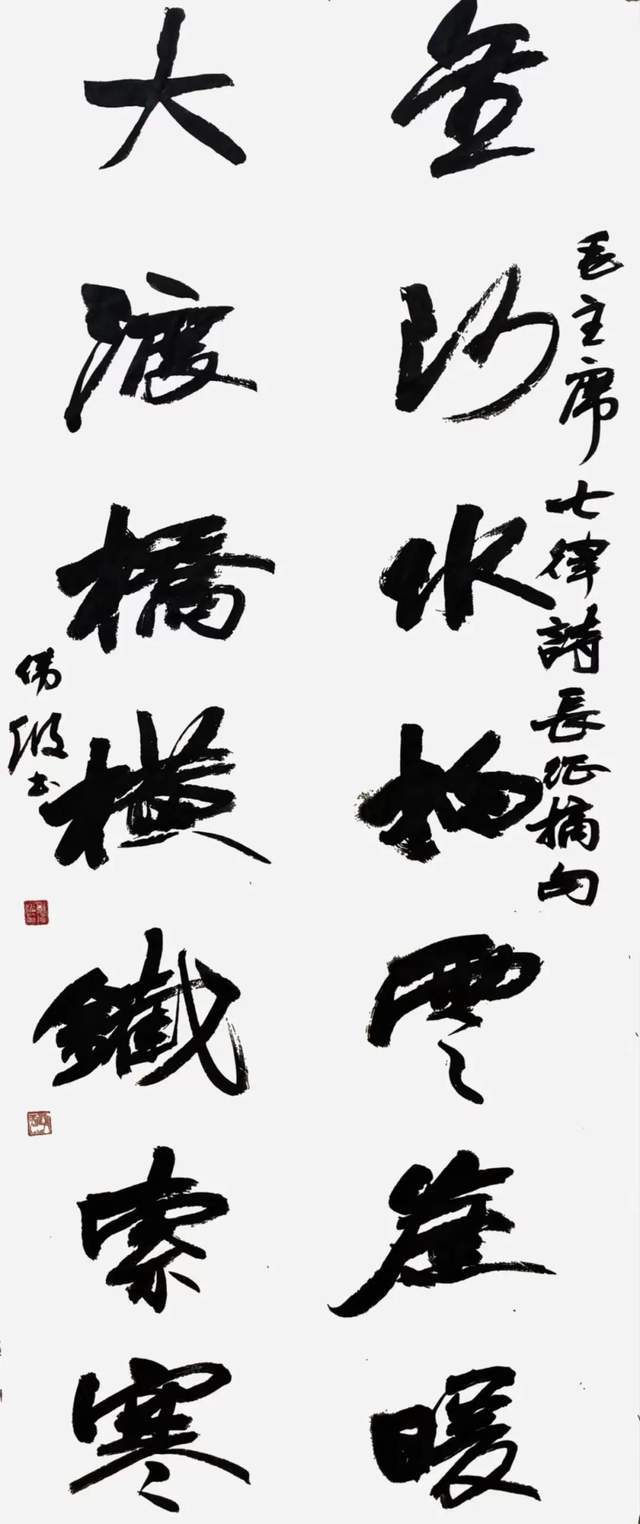 金沙水拍雲崖暖
毛主席七律詩長征摘句
大渡橋橫鐵索寒
書